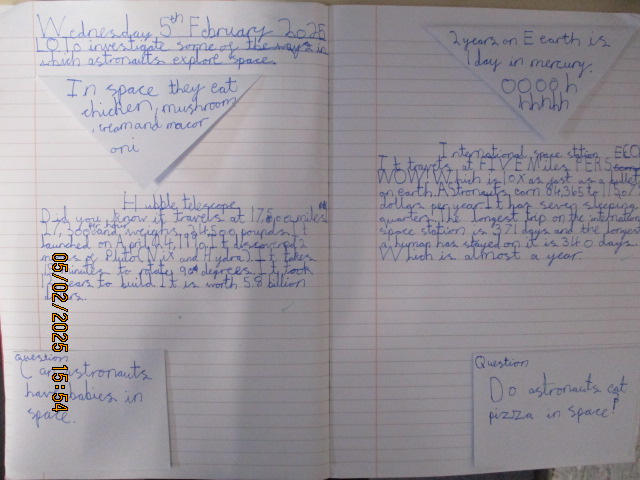 Wednesday 5th February 2025
LO To investigate some of the ways in
which astronauts explore space.
In space they eat
chicken, mushroom
, cream and macor
oni
Hubble telescope
Did you know it travels at
and weighs 24500 pounds. It
launched on April 24, 1990. It discovered 2
moons of Pluto (Nix and Hydra). It takes
minutes to rotate 90° degrees. It took
years to build. It is worth 5.8 billion
question
Can astronauts
have babies in
space.
2 years on E earth is
1 day in mercury.
OOOO h
hhhhh
International space station
It travels at FIVE Miles PER
WOW! Which is 10x as fast as a bullet
on earth. Astronauts earn 84,365 to
dollars per year. It has seven sleeping
quarters. The longest trip on the internation
space station is 371 days and the longest
a human has stayed on it is 340 days.
Which is almost a year.
Question
Do astronauts eat
pizza in space?
05/02/2025 15:54